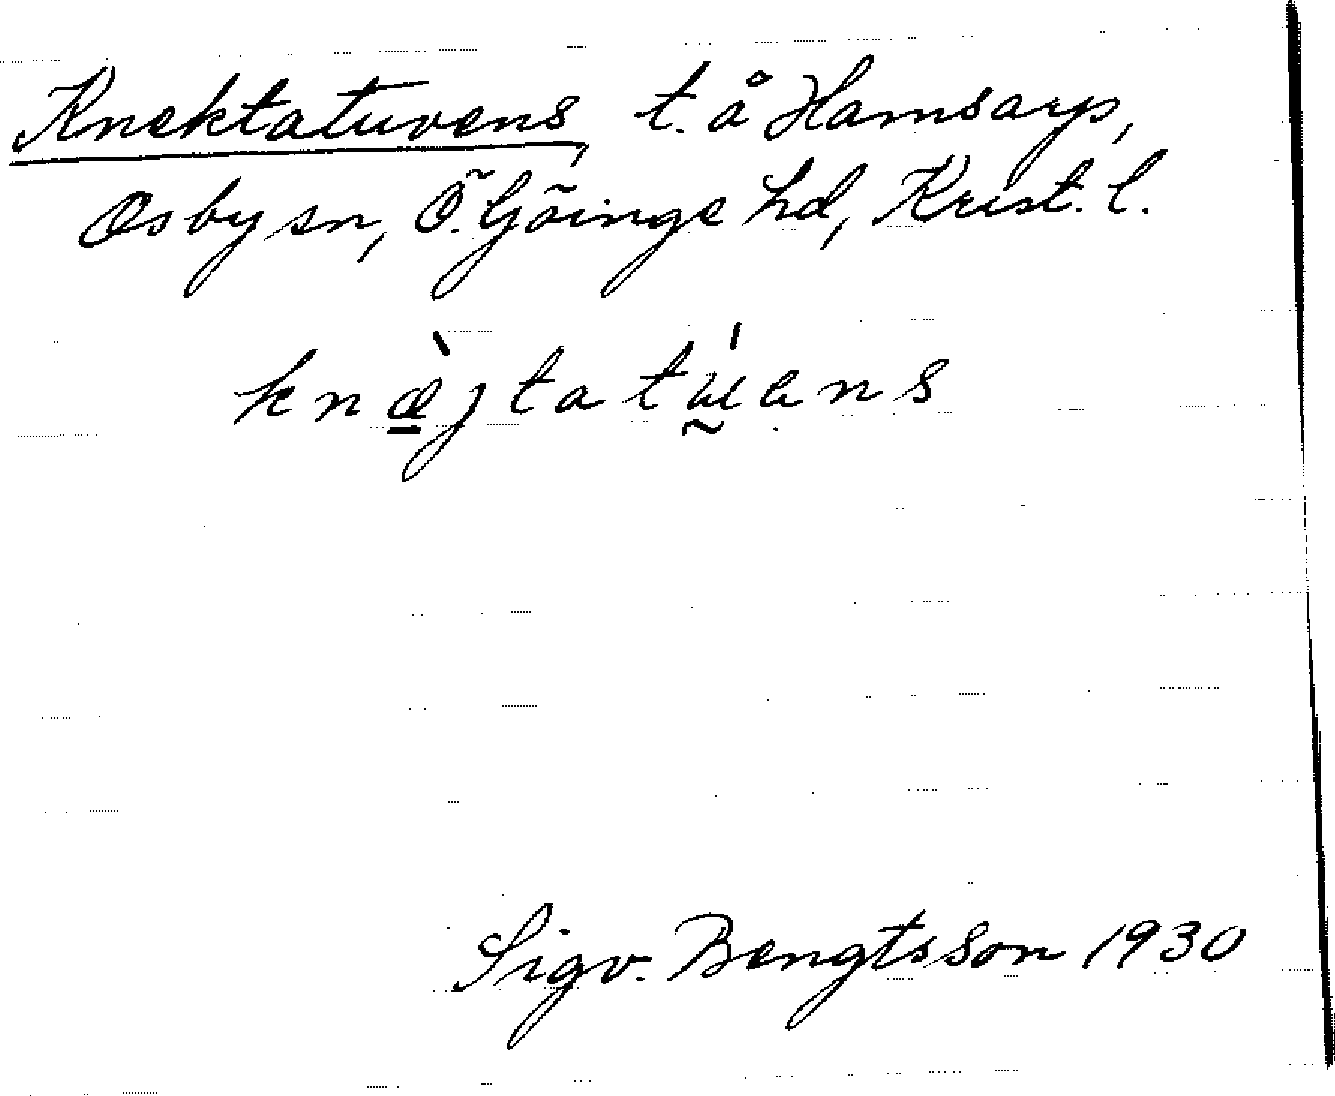 Knektatuvens, t. å Hamsarp,
Osby sn, Ö. Göinge hd, Krist. l.
knæ̠̀jtatṵ́ans
Sigv. Bengtsson 1930